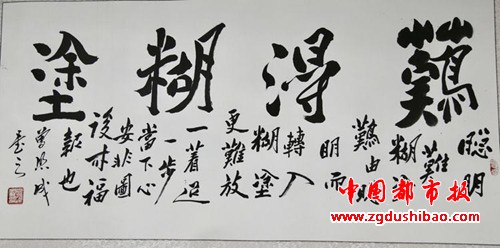 難得糊塗
聰明
難糊塗
難由聰
明而
轉入
糊塗
更難放
一着退
一步
當下心
安非圖
後來福
報也
中国都市报
www.zgdushibao.com